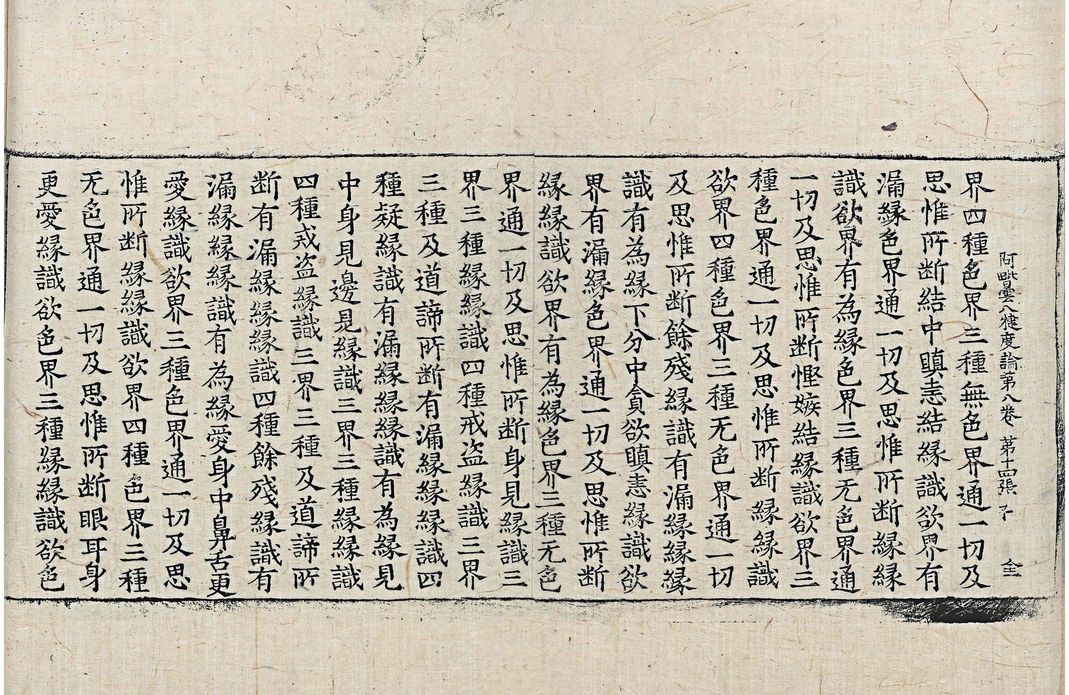 阿毗曇八犍度論第八卷 第十四張 子
界四種色界三種無色界通一切及
思惟所断結中瞋恚結緣識欲界有
漏緣色界通一切及思惟所断緣緣
識欲界有為緣色界三種无色界通
一切及思惟所断慳嫉結緣識欲界三
種色界通一切及思惟所断緣緣識
欲界四種色界三種无色界通一切
及思惟所断餘殘緣識有漏緣緣緣
識有為緣下分中貪欲瞋恚緣識欲
界有漏緣色界通一切及思惟所断
緣緣識欲界有為緣色界三種无色
界通一切及思惟所断身見緣識三
界三種緣緣識四種戒盜緣識三界
三種及道諦所断有漏緣緣緣識四
種疑緣識有漏緣緣緣識有為緣見
中身見邊見緣識三界三種緣緣識
四種戒盜緣識三界三種及道諦所
断有漏緣緣緣識四種餘殘緣識有
漏緣緣緣識有為緣愛身中鼻舌更
愛緣識欲界三種色界通一切及思
惟所断緣緣識欲界四種色界三種
无色界通一切及思惟所断眼耳身
更愛緣識欲色界三種緣緣識欲色